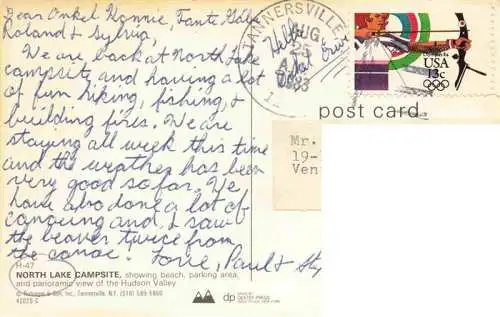 Dear Onkel Honnie, Tante
Roland & Sylvia,
We are back at North Lake
campsite and having a lot
of fun hiking, fishing, &
building fires. We are
staying all week this time
and the weather has been
very good so far. We
have also done a lot of
canoeing and, I saw
the beaver twice from
the canoe. Love, Paul &
TANNERSVILLE
AUG
25
1983
Hallo
USA
13c
post card
Mr.
19-
Ven
H-47
NORTH LAKE CAMPSITE, showing beach, parking area,
and panoramic view of the Hudson Valley
& Son, Inc., Tannersville, N.Y. (518) 589-5800
42020 C
dp
DEXTER PRESS